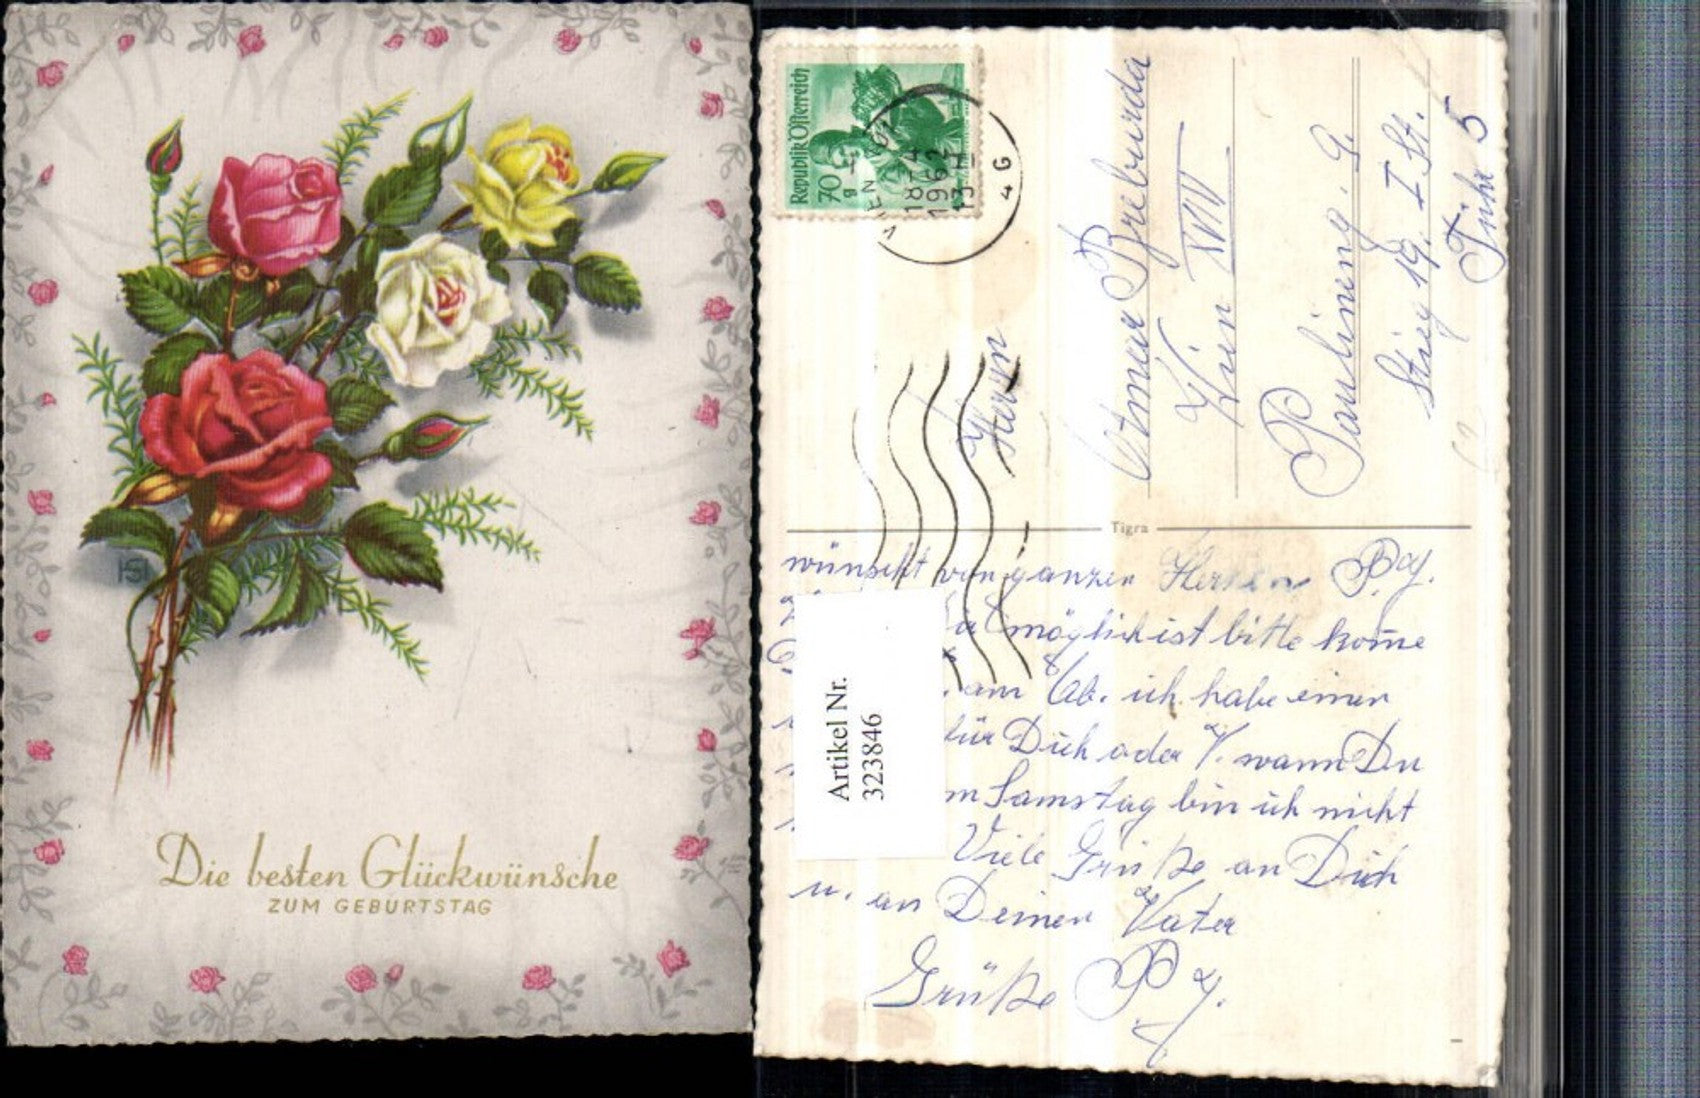 Die besten Glückwünsche
ZUM GEBURTSTAG
Republik Österreich
70 g
WIEN
18-4
1962
13
4 G
Herrn
Otmar
Wien XVIII
Paulineng. 9.
Stieg 19. I St.
Türe 5
Tigra
wünscht von ganzen Herzen P. Y.
möglich ist bitte kome
am Ab. ich habe einen
für Dich oder V. wann Du
m Samstag bin ich nicht
Viele Grüße an Dich
u. an Deinen Vater
Grüße P Y.
Artikel Nr.
323846
HS